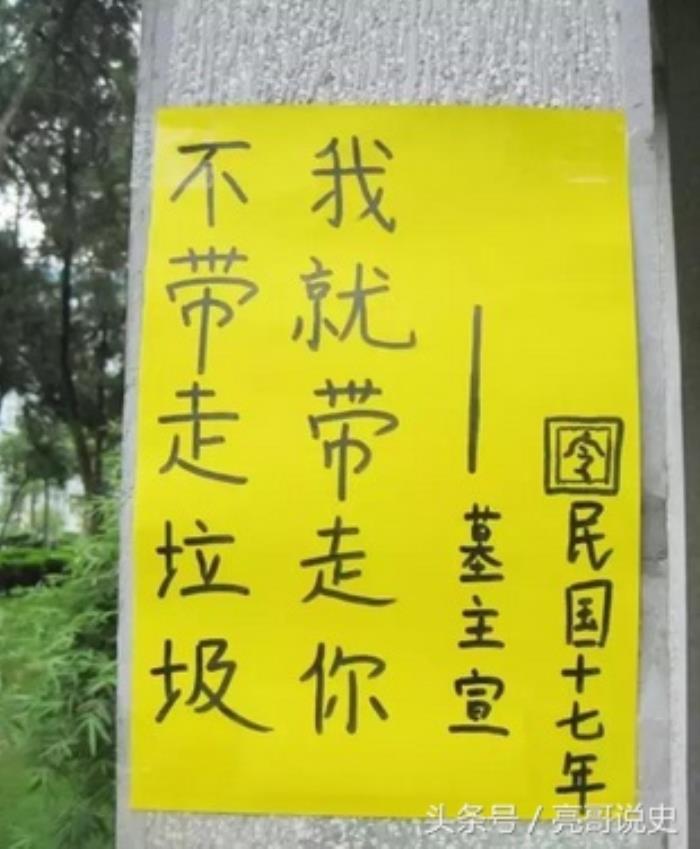 不带走垃圾
我就带走你
—墓主宣
令民国十七年
头条号/亮哥说史